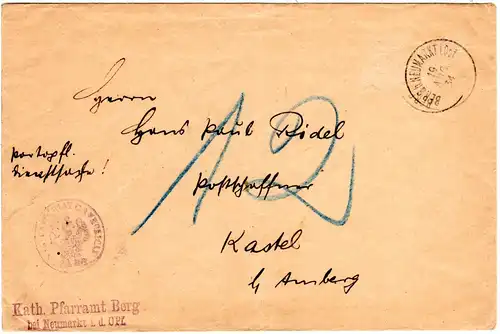 BERG b. NEUMARKT (OPF)
19
34
Herrn
Hans Paul Ridel
portopfl.
Dienstsache!
12
Postschaffner
Kastel
b/ Amberg
Kath. Pfarramt Berg
bei Neumarkt i. d. OPf.